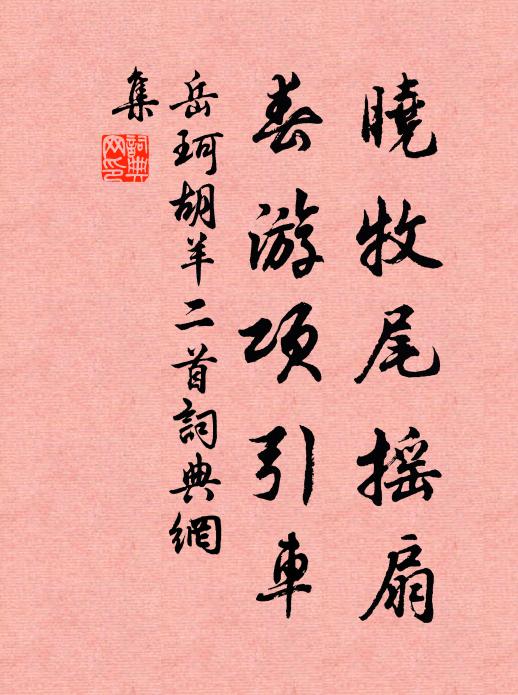 曉牧尾摇扇
春游项引車
岳珂胡羊二首詞典網
集
詞典网印